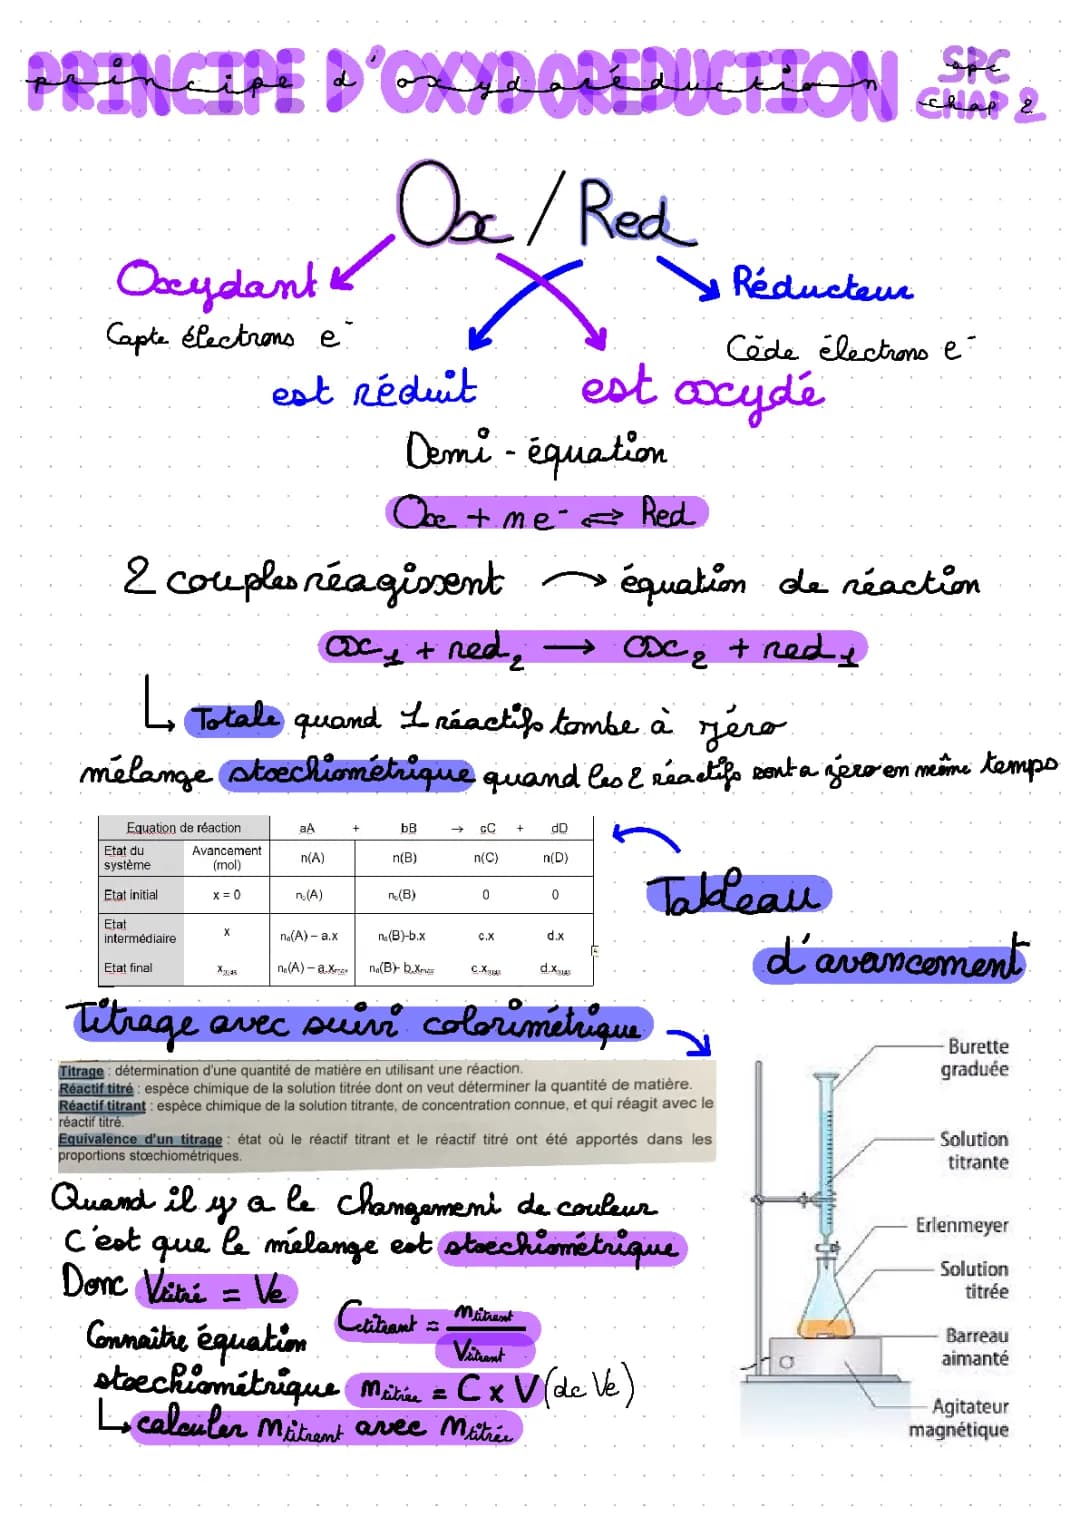 PRINCIPE D'OXYDOREDUCTION
principe d'oxydoréduction
SPC
spc
CHAP 2
chap 2
Ox / Red
Oxydant
Réducteur
Capte électrons e⁻
Cède électrons e⁻
est réduit
est oxydé
Demi - équation
Ox + ne⁻ ⇌ Red
2 couples réagissent → équation de réaction
ox₁ + red₂ → ox₂ + red₁
↳ Totale quand 1 réactifs tombe à zéro
mélange stoechiométrique quand les 2 réactifs sont a zéro en même temps
Equation de réaction aA + bB → cC + dD
Etat du système Avancement (mol) n(A) n(B) n(C) n(D)
Etat initial x = 0 n₀(A) n₀(B) 0 0
Etat intermédiaire x n₀(A) – a.x n₀(B)-b.x c.x d.x
Etat final xmax n₀(A) – a.xmax n₀(B)- b.xmax c.xmax d.xmax
Tableau
d'avancement
Titrage avec suivi colorimétrique
Titrage : détermination d'une quantité de matière en utilisant une réaction.
Réactif titré : espèce chimique de la solution titrée dont on veut déterminer la quantité de matière.
Réactif titrant : espèce chimique de la solution titrante, de concentration connue, et qui réagit avec le
réactif titré.
Equivalence d'un titrage : état où le réactif titrant et le réactif titré ont été apportés dans les
proportions stœchiométriques.
Quand il y a le changement de couleur
C'est que le mélange est stoechiométrique
Donc Vtitré = Ve
Connaitre équation
stoechiométrique
Ctitrant = ntitrant / Vtitrant
ntitrée = C x V (de Ve)
↳ calculer ntitrant avec ntitrée
Burette
graduée
Solution
titrante
Erlenmeyer
Solution
titrée
Barreau
aimanté
Agitateur
magnétique